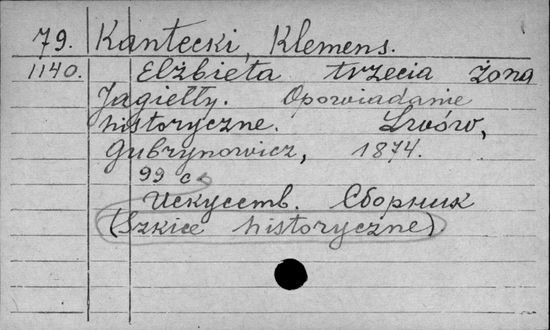 79. Kantecki, Klemens.
1140. Elżbieta trzecia żona
Jagiełły. Opowiadanie
historyczne. Lwów,
Gubrynowicz, 1874.
99 с
Искусств. Сборник
(Szkice historyczne)